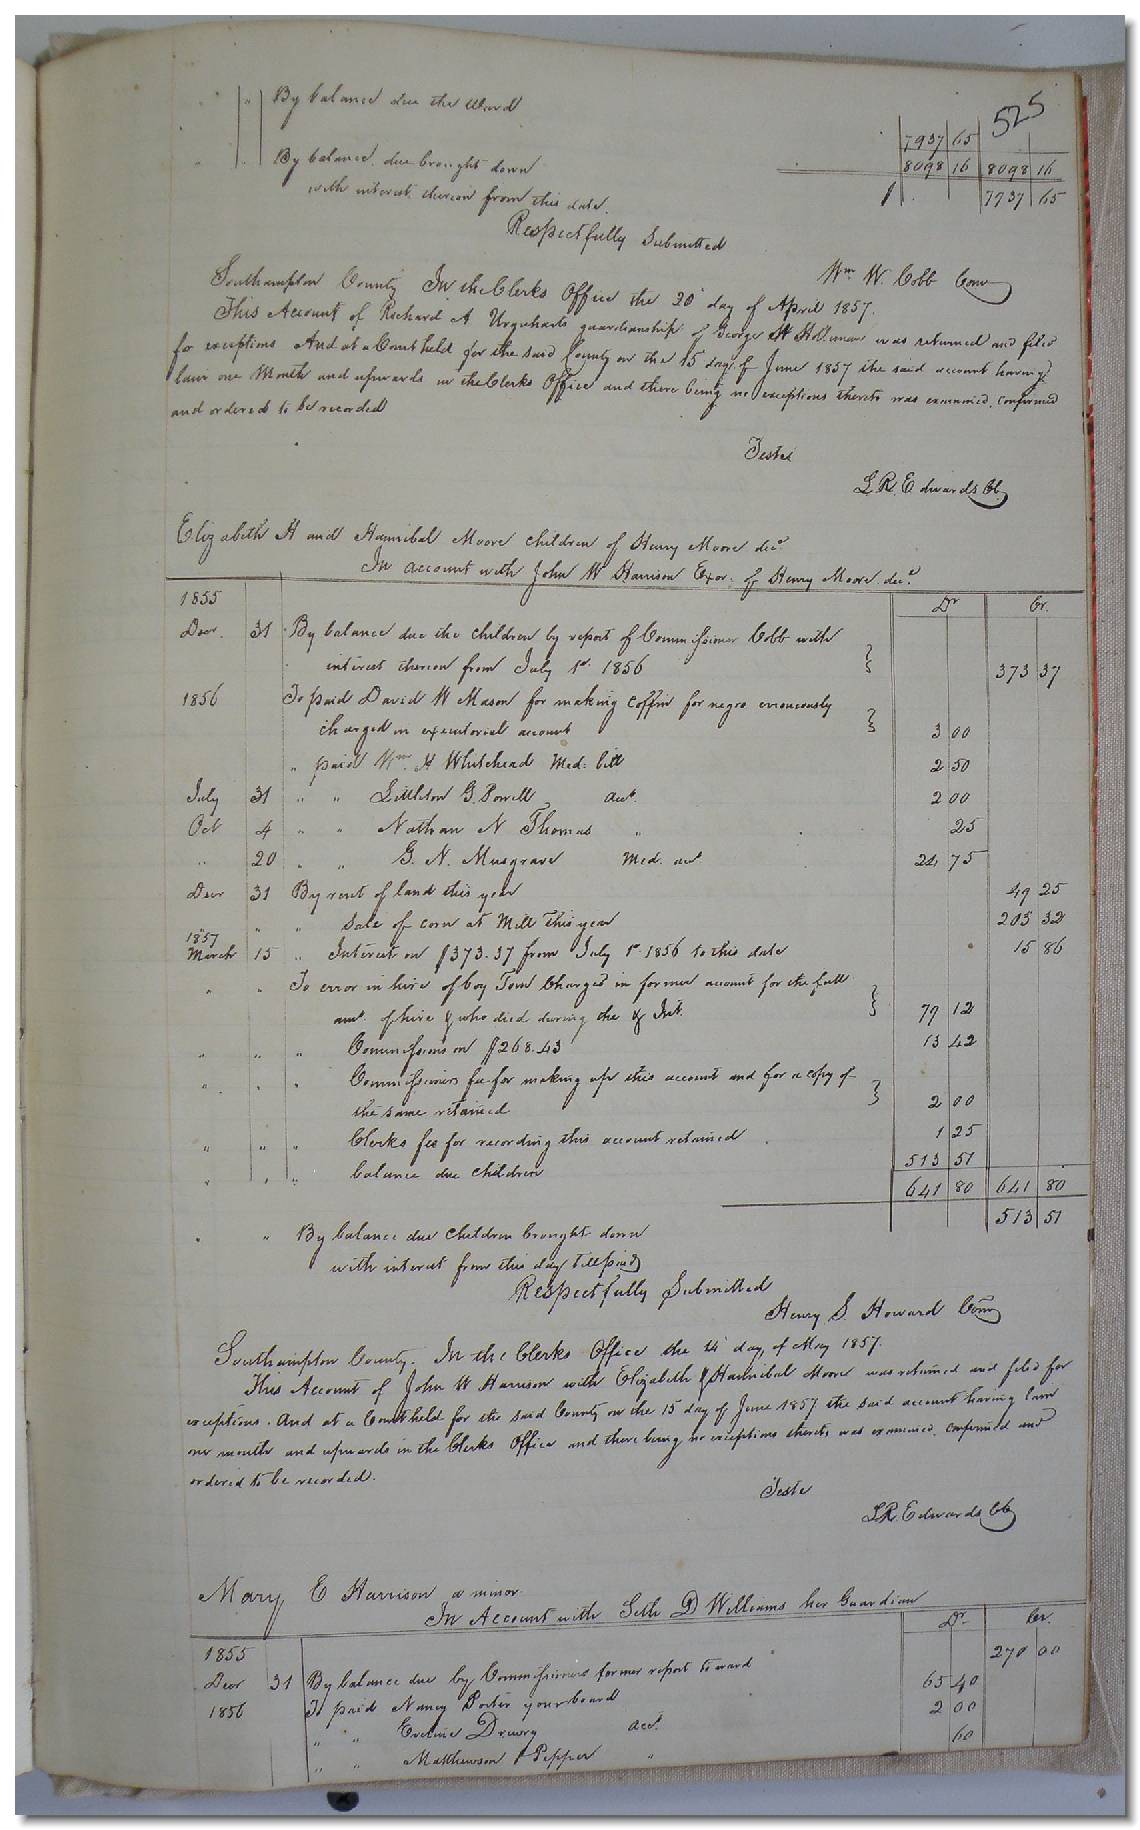 525
" By balance due the Ward 7937 65
8098 16 8098 16
" By balance due brought down 7937 65
with interest thereon from this date.
Respectfully Submitted
Wm W. Cobb Com
Southampton County In the Clerks Office the 20 day of April 1857.
This Account of Richard A Urquharts guardianship of George W Holleman was returned and filed
for exceptions And at a Court held for the said County on the 15 day of June 1857 the said account having
lain one Month and upwards in the Clerks Office and there being no exceptions thereto was examined, confirmed
and ordered to be recorded
Teste
L R. Edwards Cl.
Elizabeth H and Hannibal Moore children of Henry Moore decd
In account with John W Harrison Exor. of Henry Moore decd.
1855 Dr Cr.
Decr. 31 By balance due the children by report of Commissioner Cobb with
interest thereon from July 1st 1856 373 37
1856 To paid David W Mason for making coffin for negro erroneously
charged in executorial account 3 00
" paid Wm. H Whitehead Med. bill 2 50
July 31 " " Littleton G. Powell acct. 2 00
Oct 4 " " Nathan N Thomas " 25
" 20 " " G. N. Musgrave Med. act 24 75
Decr 31 By rent of land this year 49 25
" " " Sale of corn at Mill this year 203 32
1857
March 15 " Interest on $373.37 from July 1st 1856 to this date 15 86
" " To error in hire of boy Tom Charged in former account for the full
amt. of hire & who died during the & Int. 79 12
" " " Commissions on $268.43 13 42
" " " Commissioners fee for making up this account and for a copy of
the same retained 2 00
" " " Clerks fee for recording this account retained 1 25
" " " balance due children 513 51
641 80 641 80
" " By balance due children brought down 513 51
with interest from this day till paid
Respectfully Submitted
Henry S. Howard Com
Southampton County. In the Clerks Office the 14 day of May 1857.
This Account of John W Harrison with Elizabeth & Hannibal Moore was returned and filed for
exceptions. And at a Court held for the said County on the 15 day of June 1857 the said account having lain
one month and upwards in the Clerks Office and there being no exceptions thereto was examined, confirmed and
ordered to be recorded.
Teste
L R. Edwards Cl
Mary E Harrison a minor
In Account with Seth D Williams her Guardian
1855 Dr. Cr.
Decr 31 By balance due by Commissioners former report to ward 270 00
1856 To paid Nancy Porter your board 65 40
" " Eveline Drewry acct. 2 00
" " Matthewson & Pepper " 60